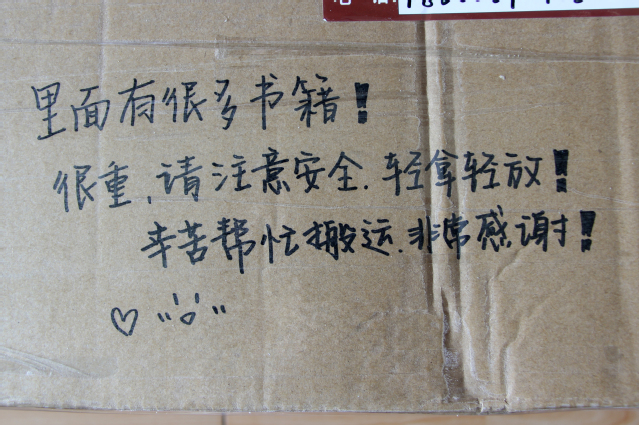 里面有很多书籍！
很重，请注意安全．轻拿轻放！
辛苦帮忙搬运．非常感谢！